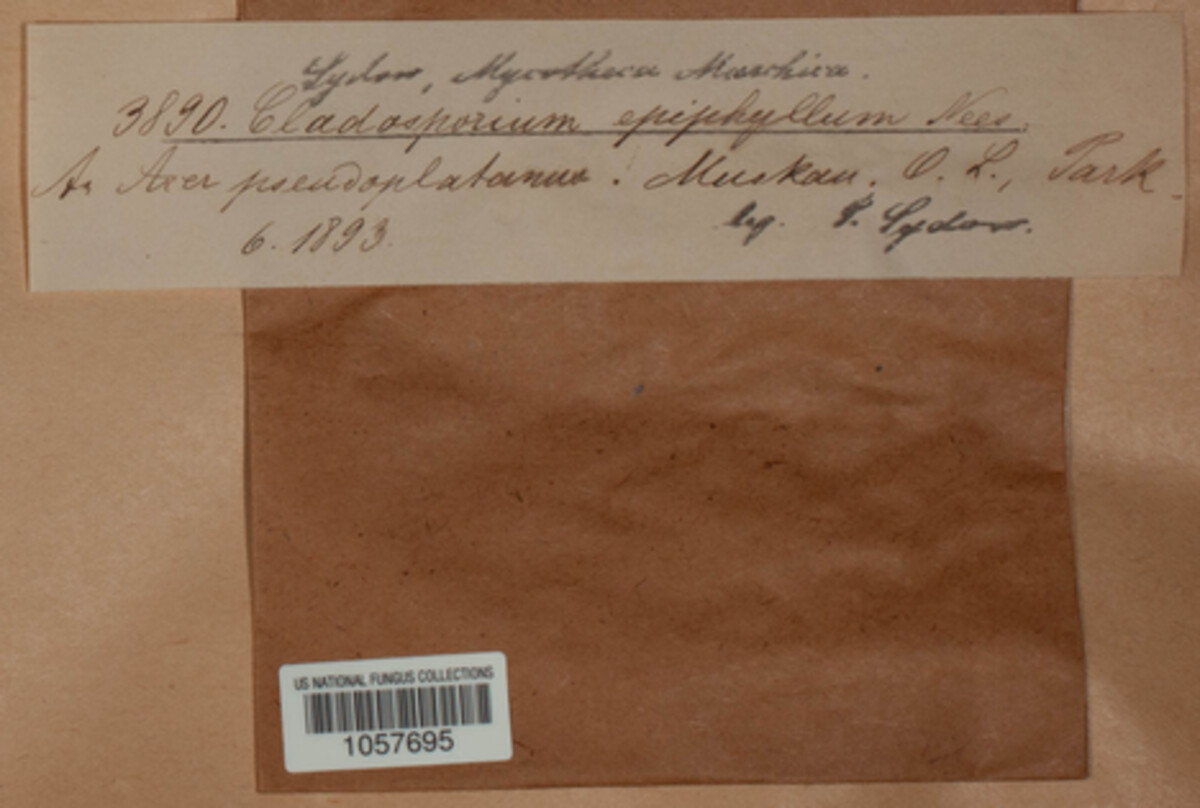 Sydow, Mycotheca Marchica.
3890. Cladosporium epiphyllum Nees.
An Acer pseudoplatanus. Muskau. O. L., Park
6. 1893.
leg. P. Sydow.
US NATIONAL FUNGUS COLLECTIONS
1057695